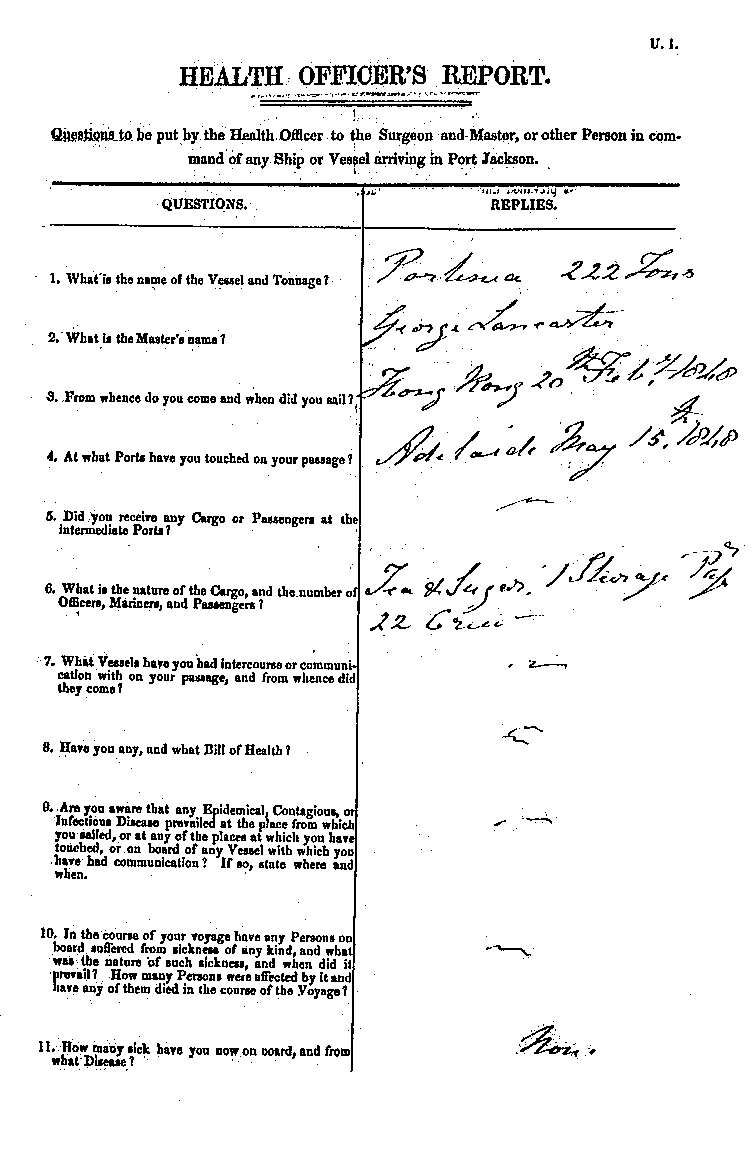 U. 1.
HEALTH OFFICER'S REPORT.
Questions to be put by the Health Officer to the Surgeon and Master, or other Person in com-
mand of any Ship or Vessel arriving in Port Jackson.
QUESTIONS.
REPLIES.
1. What is the name of the Vessel and Tonnage?
222 Tons
2. What is the Master's name?
George Lancaster
3. From whence do you come and when did you sail?
Hong Kong 20th Feby. 1848
4. At what Ports have you touched on your passage?
Adelaide May 15th. 1848
5. Did you receive any Cargo or Passengers at the
intermediate Ports?
6. What is the nature of the Cargo, and the number of
Officers, Mariners, and Passengers?
Tea & Sugar. 1 Sterage
22 Crew
7. What Vessels have you had intercourse or communi-
cation with on your passage, and from whence did
they come?
8. Have you any, and what Bill of Health?
9. Are you aware that any Epidemical, Contagious, or
Infectious Disease prevailed at the place from which
you sailed, or at any of the places at which you have
touched, or on board of any Vessel with which you
have had communication? If so, state where and
when.
10. In the course of your voyage have any Persons on
board suffered from sickness of any kind, and what
was the nature of such sickness, and when did it
prevail? How many Persons were affected by it and
have any of them died in the course of the Voyage?
11. How many sick have you now on board, and from
what Disease?
Non.